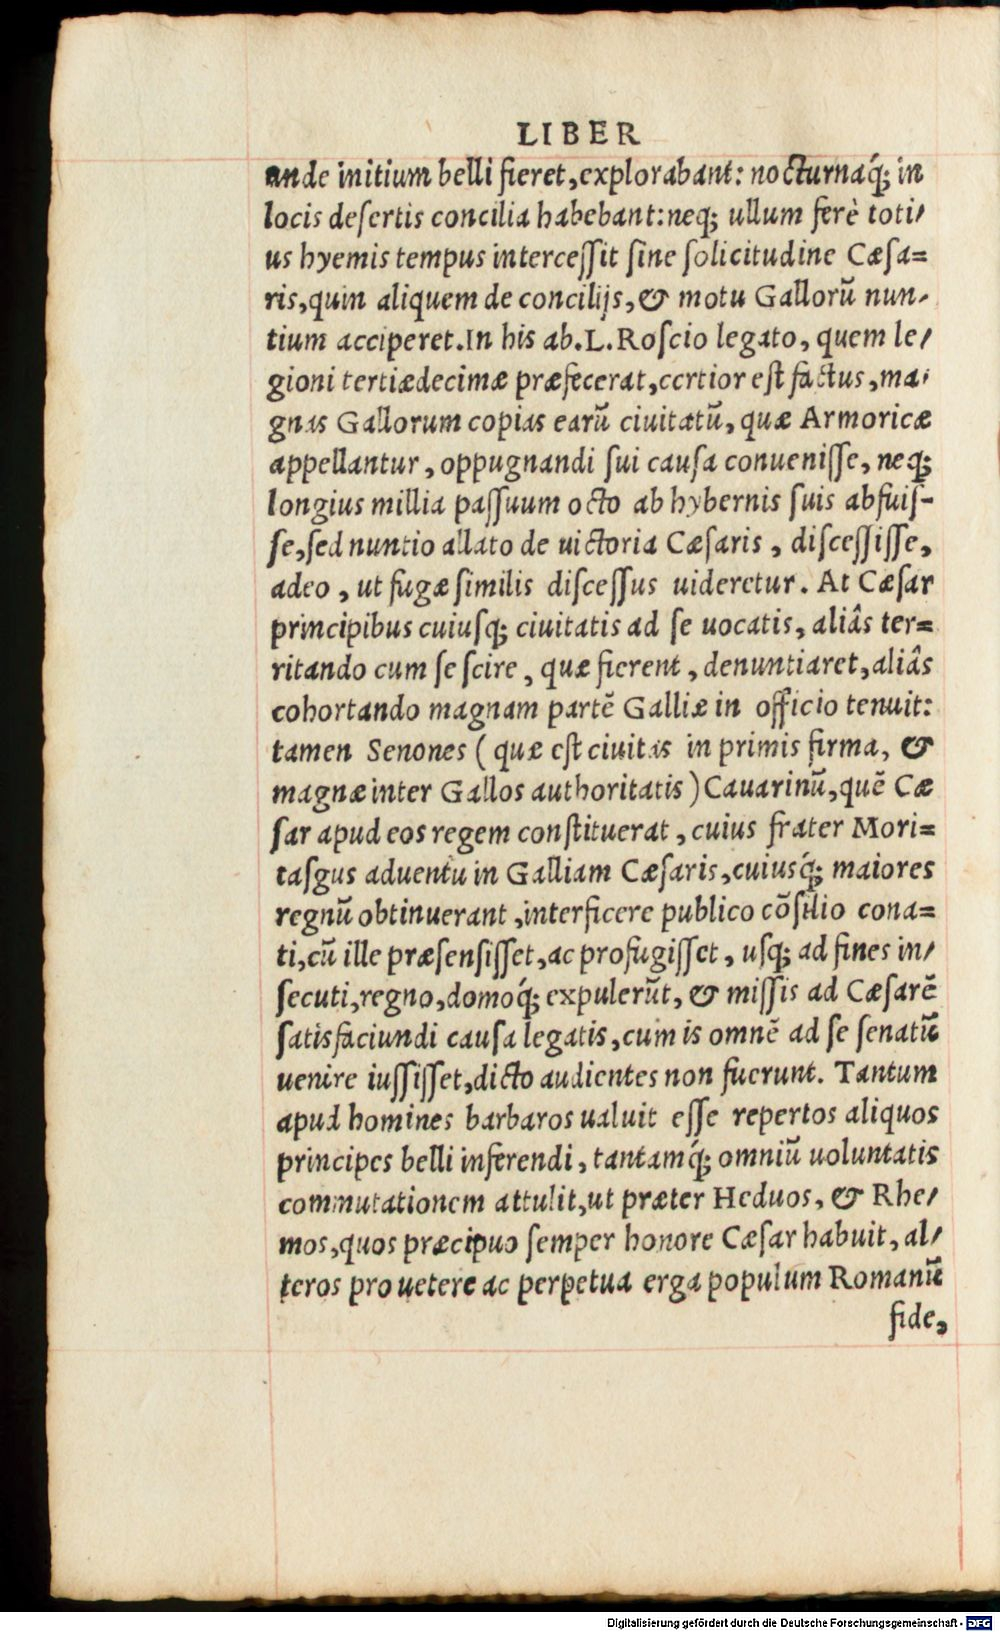 LIBER
unde initium belli fieret, explorabant: nocturnaq́; in
locis deſertis concilia habebant: neq; ullum ferè toti/
us hyemis tempus interceſſit ſine ſolicitudine Cæſa=
ris, quin aliquem de concilijs, & motu Gallorũ nun/
tium acciperet. In his ab. L. Roſcio legato, quem le/
gioni tertiædecimæ præfecerat, certior eſt factus, ma/
gnas Gallorum copias earũ ciuitatũ, quæ Armoricæ
appellantur, oppugnandi ſui cauſa conueniſſe, neq;
longius millia paſſuum octo ab hybernis ſuis abfuiſ-
ſe, ſed nuntio allato de uictoria Cæſaris, diſceſſiſſe,
adeo, ut fugæ ſimilis diſceſſus uideretur. At Cæſar
principibus cuiuſq; ciuitatis ad ſe uocatis, aliâs ter=
ritando cum ſe ſcire, quæ fierent, denuntiaret, aliâs
cohortando magnam partẽ Galliæ in officio tenuit:
tamen Senones ( quæ eſt ciuitas in primis firma, &
magnæ inter Gallos authoritatis ) Cauarinũ, quẽ Cæ
ſar apud eos regem conſtituerat, cuius frater Mori=
taſgus aduentu in Galliam Cæſaris, cuiusq́; maiores
regnũ obtinuerant, interficere publico cõſilio cona=
ti, cũ ille præsensiſſet, ac profugiſſet, uſq; ad fines in/
ſecuti, regno, domoq́; expulerũt, & miſſis ad Cæſarẽ
ſatisfaciundi cauſa legatis, cum is omnẽ ad ſe senatũ
uenire iuſſiſſet, dicto audientes non fuerunt. Tantum
apud homines barbaros ualuit eſſe repertos aliquos
principes belli inferendi, tantamq́; omniũ uoluntatis
commutationem attulit, ut præter Heduos, & Rhe/
mos, quos præcipuo ſemper honore Cæſar habuit, al/
teros pro uetere ac perpetua erga populum Romanũ
fide,
Digitalisierung gefördert durch die Deutsche Forschungsgemeinschaft - DFG